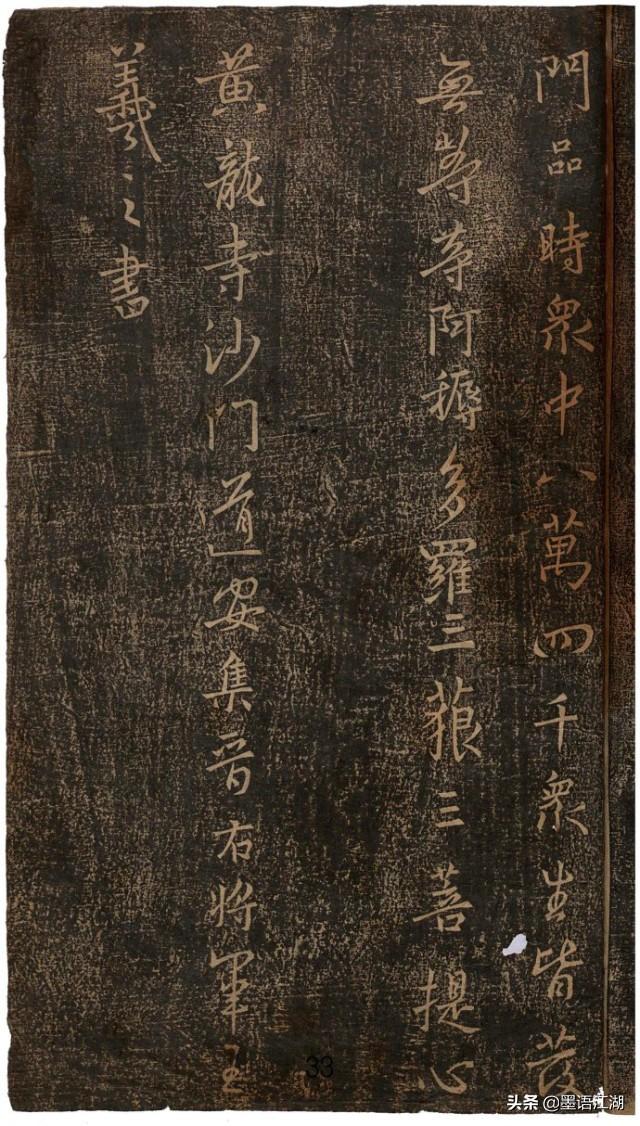 門品時眾中八萬四千眾生皆發
無等等阿耨多羅三藐三菩提心
黃龍寺沙門道安集晉右將軍王
羲之書
33
头条 @墨语江湖